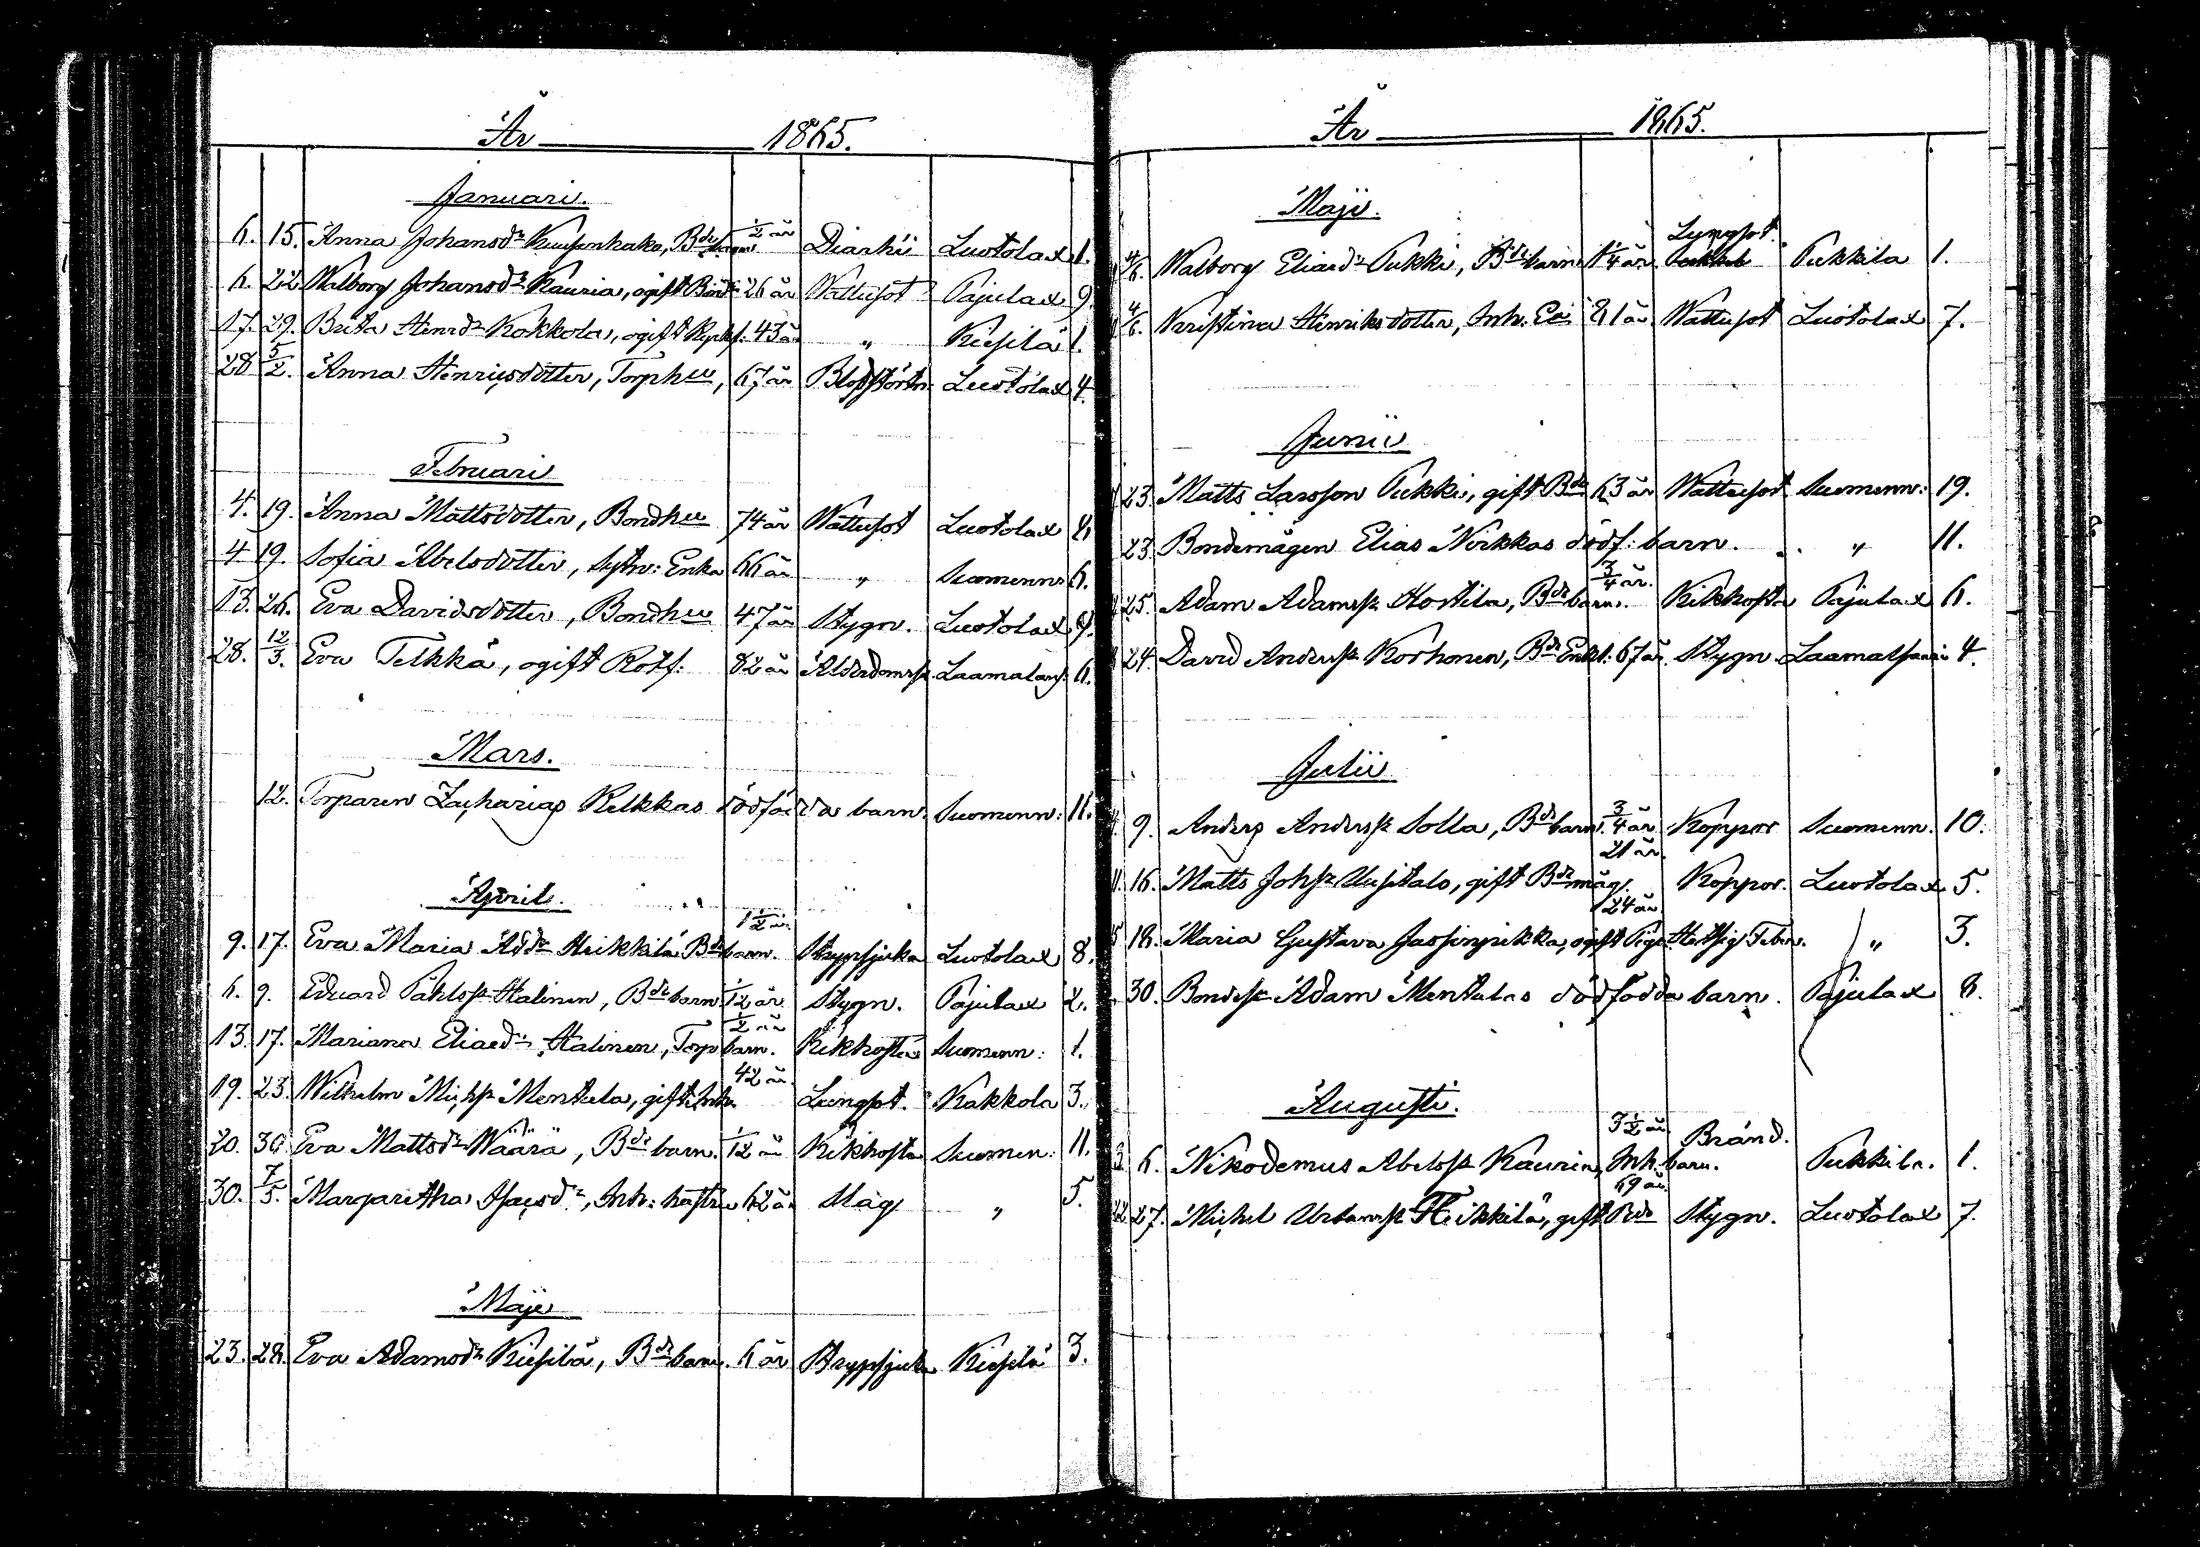 År 1865.
Januari.
6. 15. Anna Johansdr Kuusenhako, Bdebarn ½ år Diarhé Luotolax 1.
6. 22 Walborg Johansdr Kauria, ogift Bond 26 år Wattusot Pajulax 9.
17. 29. Brita Henrdr Kokkola, ogift 43 år " Kiesilä 1.
28 5/2. Anna Henricsdotter, Torphu, 67 år Luotolax 4.
Februari
4. 19. Anna Mattsdotter, Bondhu 74 år Wattusot Luotolax 8.
4 19. Sofia Abelsdotter, Sytn: Enka 66 år " Suomenn: 6.
13. 26. Eva Davidsdotter, Bondhu 47 år Stygn. Luotolax 9.
28. 12/3. Eva Telkkä, ogift Rotf: 82 år Ålderdomssk Laamalans. 6.
Mars.
12. Torparen Zacharias Kelkkas dödfödda barn. Suomenn: 11.
April.
9. 17. Eva Maria Addr Heikkilä Bdebarn. 1½ år. Strypsjuka Luotolax 8.
6. 9. Eduard Påhlss. Halinen, Bdebarn 1/12 år Stygn. Pajulax 2.
13. 17. Mariana Eliaedr Halinen, Torpbarn. ½ år Kikhosta Suomenn: 1.
19. 23. Wilhelm Michss. Mentula, gift Inh. 42 år Lungsot. Kakkola 3.
20. 30 Eva Mattsdr Wäärä, Bdebarn. 1/12 år Kikhosta Suomen: 11.
30. 7/5. Margaretha Isacsdr, Inh: hustru 62 år Slag " 5.
Maji
23. 28. Eva Adamsdr Kiesilä, Bdebarn. 6 år Strypsjuka Kiesilä 3.
År 1865.
Maji.
4/6. Walborg Eliaedr Pukki, Bdebarn 1¼ år Lungsot. Pukkila 1.
4/6. Kristina Henriksdotter, Inh. Ea 81 år Wattusot Luotolax 7.
Junii
23. Matts Larsson Pukki, gift Bde 63 år Wattusot Suomenn: 19.
23. Bondemågen Elias Noikkas dödf: barn. " 11.
25. Adam Adamss. Hostila, Bdebarn. ¾ år. Kikhosta Pajulax 6.
24. David Anderss. Korhonen, Bde Enkl: 67 år. Stygn Laamalans: 4.
Julii
9. Anders Anderss. Solla, Bdebarn. ¾ år Koppor Suomenn. 10.
16. Matts Johss. Uusitalo, gift Bdemåg. 21 år. Koppor. Luotolax 5.
18. Maria Gustava Jassinpikka, ogift Piga 24 år Hetsig Feber. " 3.
30. Bondess. Adam Mentulas dödfödda barn. Pajulax 8.
Augusti.
6. Nikodemus Abelss. Kauria, Inh. barn. 3½ år Bränd. Pukkila. 1.
27. Michel Urbanss. Heikkilä, gift Bde 69 år. Stygn. Luotolax 7.